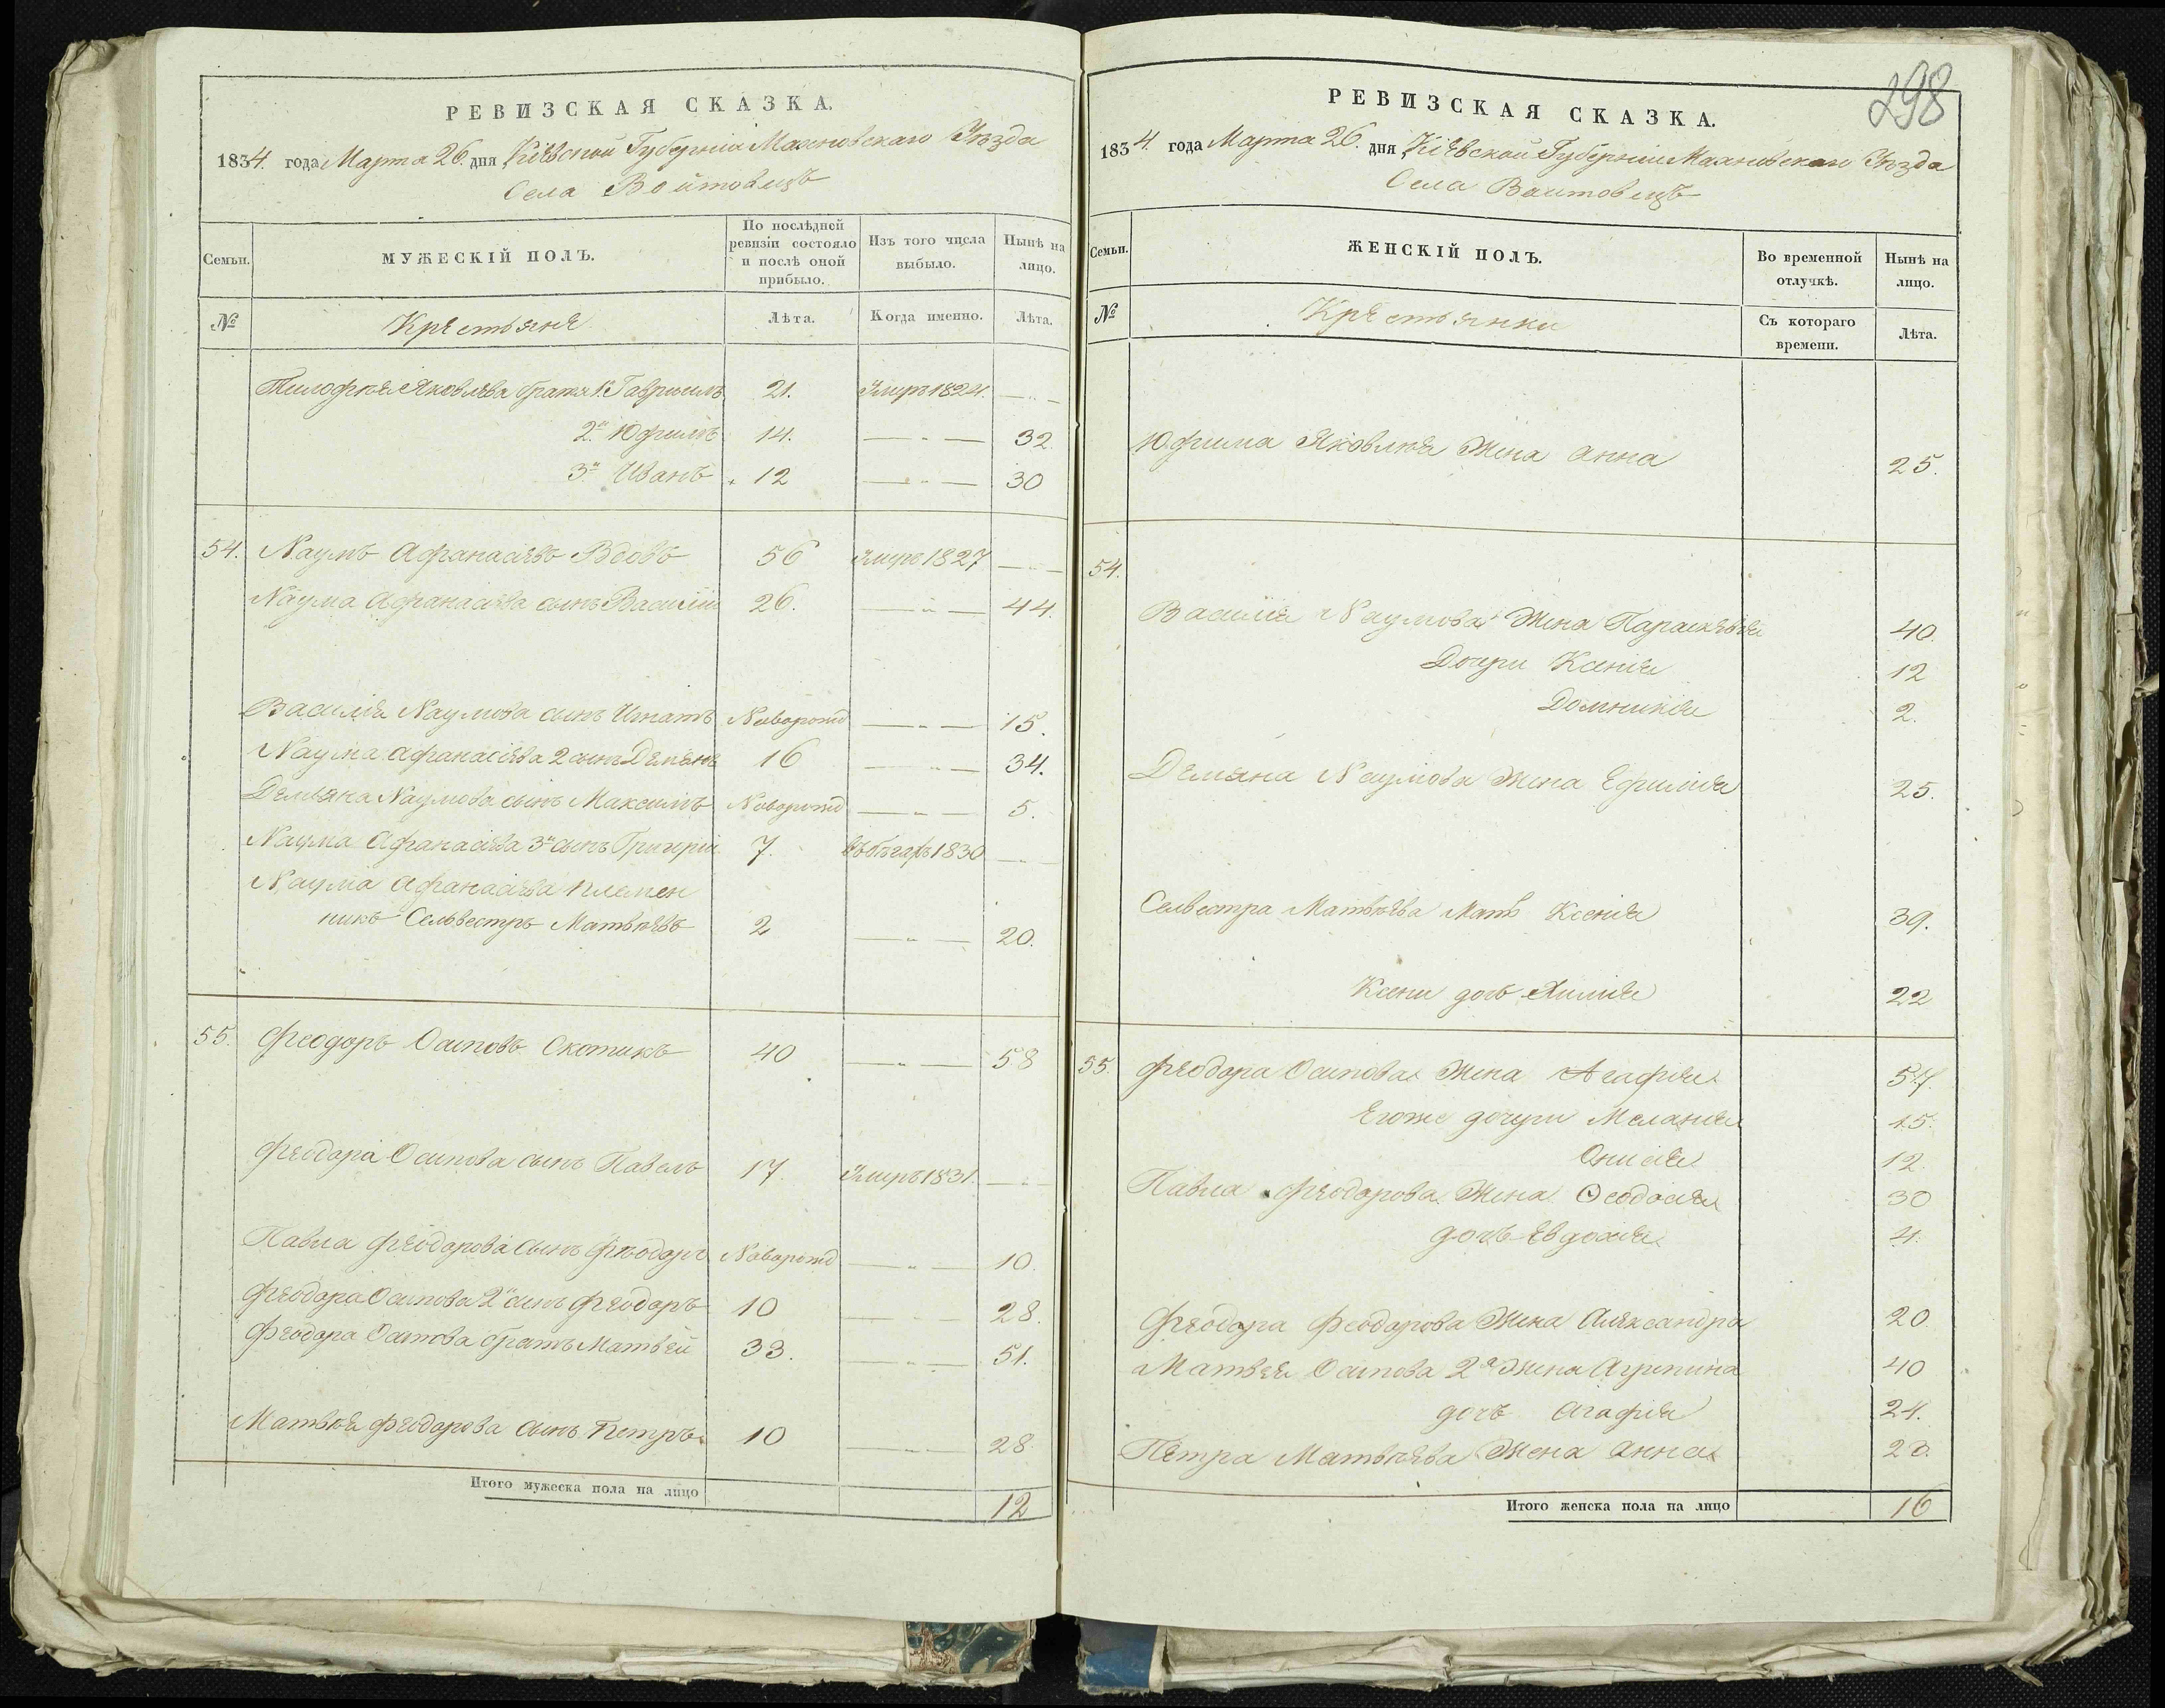 РЕВИЗСКАЯ СКАЗКА.
1834. года Марта 26. дня Кіевской Губерніи Махновскаго Уѣзда
Села Войтовецъ
Семьи.
МУЖЕСКІЙ ПОЛЪ.
По послѣдней
ревизіи состояло
и послѣ оной
прибыло.
Изъ того числа
выбыло.
Нынѣ на
лицо.
№
Крестьяне
Лѣта.
Когда именно.
Лѣта.
Яковлева братья 1. Гавриилъ 21. Умеръ 1824. — " —
2й Юфимъ 14. — " — 32
3й Иванъ 12 — " — 30
54. Наумъ Афанасіевъ Вдовъ 56 Умеръ 1827 — " —
Наума Афанасіева сынъ Василій 26. — " — 44.
Василія Наумова сынъ Игнатъ Новорожд — " — 15.
Наума Афанасіева 2 сынъ Демянъ 16 — " — 34.
Демьяна Наумова сынъ Максимъ Новорожд — " — 5.
Наума Афанасіева 3й сынъ Григорій 7. въ бѣгахъ 1830 — " —
Наума Афанасіева племен
никъ Сельвестръ Матвѣевъ 2 — " — 20.
55. Феодоръ Осиповъ Скотикъ 40 — " — 58
Феодора Осипова сынъ Павелъ 17. Умеръ 1831. — " —
Павла Феодорова сынъ Феодоръ Новорожд — " — 10.
Феодора Осипова 2й сынъ Феодоръ 10 — " — 28.
Феодора Осипова братъ Матвей 33. — " — 51.
Матвѣя Феодорова сынъ Петръ 10 — " — 28.
Итого мужеска пола на лицо 12
298
РЕВИЗСКАЯ СКАЗКА.
1834 года Марта 26. дня Кіевской Губерніи Махновскаго Уѣзда
Села Ваитовецъ
Семьи.
ЖЕНСКІЙ ПОЛЪ.
Во временной
отлучкѣ.
Нынѣ на
лицо.
№
Крестьянки
Съ котораго
времени.
Лѣта.
Юфима Яковлева Жена Анна 25.
54.
Василія Наумова Жена Параскевія 40.
Дочери Ксенія 12
Домникія 2.
Демяна Наумова Жена Ефимія 25.
Селвестра Матвѣева Мать Ксенія 39.
Ксени дочь 22
55. Феодора Осипова Жена Агафія 57.
Егоже дочери Меланія 15.
Онисія 12.
Павла Феодорова Жена Феодосія 30
дочь Евдокія 4.
Феодора Феодорова Жена Александра 20
Матвея Осипова 2я Жена Агрипина 40
дочь Агафія 24.
Петра Матвѣева Жена Анна 20.
Итого женска пола на лицо 16